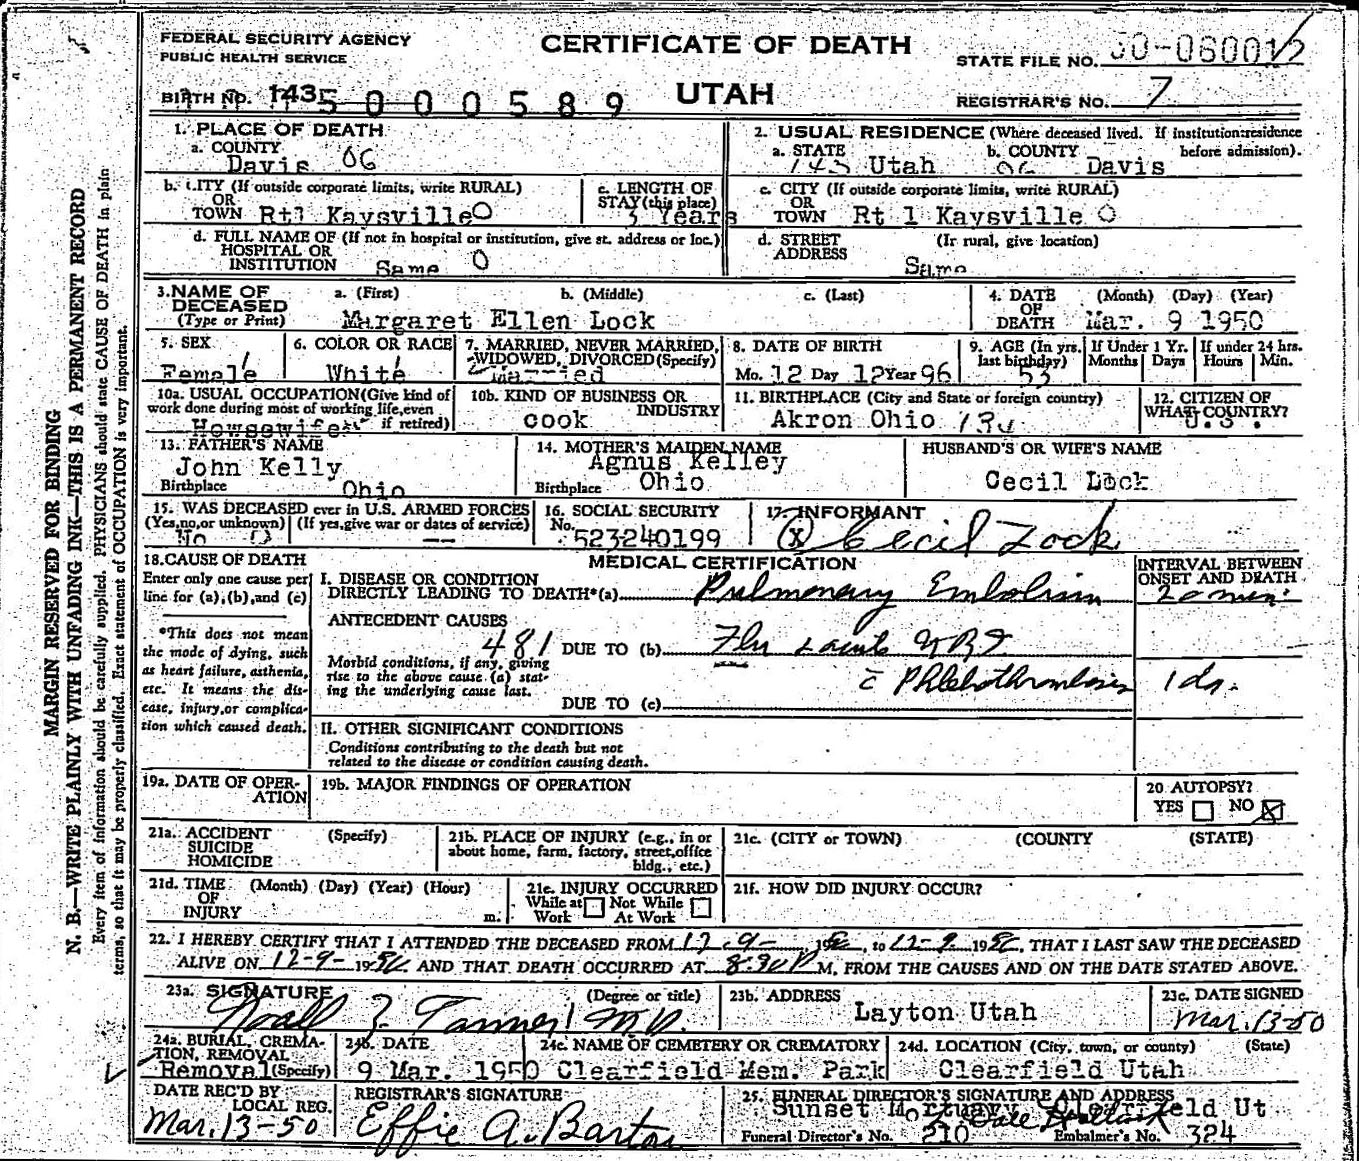 FEDERAL SECURITY AGENCY
PUBLIC HEALTH SERVICE
CERTIFICATE OF DEATH
UTAH
STATE FILE NO. 50-060012
BIRTH NO. 143 5000589
REGISTRAR'S NO. 7
1. PLACE OF DEATH
a. COUNTY
Davis 06
2. USUAL RESIDENCE (Where deceased lived. If institution:residence before admission).
a. STATE 143 Utah
b. COUNTY 06 Davis
b. CITY (If outside corporate limits, write RURAL)
OR
TOWN Rt1 Kaysville O
c. LENGTH OF
STAY (this place)
3 Years
c. CITY (If outside corporate limits, write RURAL)
OR
TOWN Rt 1 Kaysville O
d. FULL NAME OF (If not in hospital or institution, give st. address or loc.)
HOSPITAL OR
INSTITUTION Same O
d. STREET (If rural, give location)
ADDRESS
Same
3. NAME OF
DECEASED
(Type or Print)
a. (First) b. (Middle) c. (Last)
Margaret Ellen Lock
4. DATE (Month) (Day) (Year)
OF
DEATH Mar. 9 1950
5. SEX
Female
6. COLOR OR RACE
White
7. MARRIED, NEVER MARRIED,
WIDOWED, DIVORCED (Specify)
Married
8. DATE OF BIRTH
Mo. 12 Day 12 Year 96
9. AGE (In yrs.
last birthday)
53
If Under 1 Yr.
Months Days
If under 24 hrs.
Hours Min.
10a. USUAL OCCUPATION (Give kind of
work done during most of working life, even
if retired)
Howsewife
10b. KIND OF BUSINESS OR
INDUSTRY
cook
11. BIRTHPLACE (City and State or foreign country)
Akron Ohio
12. CITIZEN OF
WHAT COUNTRY?
U.S.
13. FATHER'S NAME
John Kelly
Birthplace Ohio
14. MOTHER'S MAIDEN NAME
Agnus Kelley
Birthplace Ohio
HUSBAND'S OR WIFE'S NAME
Cecil Lock
15. WAS DECEASED ever in U.S. ARMED FORCES
(Yes, no, or unknown) (If yes, give war or dates of service)
No --
16. SOCIAL SECURITY
No. 523240199
17. INFORMANT
(X) Cecil Lock
18. CAUSE OF DEATH
Enter only one cause per
line for (a), (b), and (c)
*This does not mean
the mode of dying, such
as heart failure, asthenia,
etc. It means the dis-
ease, injury, or complica-
tion which caused death.
MEDICAL CERTIFICATION
INTERVAL BETWEEN
ONSET AND DEATH
I. DISEASE OR CONDITION
DIRECTLY LEADING TO DEATH*(a) Pulmonary Embolism
20 min.
ANTECEDENT CAUSES
481 DUE TO (b) Flu
c̄ Phlebothrombosis 1 da.
Morbid conditions, if any, giving
rise to the above cause (a) stat-
ing the underlying cause last.
DUE TO (c)
II. OTHER SIGNIFICANT CONDITIONS
Conditions contributing to the death but not
related to the disease or condition causing death.
19a. DATE OF OPER-
ATION
19b. MAJOR FINDINGS OF OPERATION
20 AUTOPSY?
YES NO
21a. ACCIDENT (Specify)
SUICIDE
HOMICIDE
21b. PLACE OF INJURY (e.g., in or
about home, farm, factory, street, office
bldg., etc.)
21c. (CITY or TOWN) (COUNTY) (STATE)
21d. TIME (Month) (Day) (Year) (Hour)
OF
INJURY m.
21e. INJURY OCCURRED
While at Not While
Work At Work
21f. HOW DID INJURY OCCUR?
22. I HEREBY CERTIFY THAT I ATTENDED THE DECEASED FROM 12-9- 1950, to 12-9 1950, THAT I LAST SAW THE DECEASED
ALIVE ON 12-9- 1950 AND THAT DEATH OCCURRED AT 8:30 P M, FROM THE CAUSES AND ON THE DATE STATED ABOVE.
23a. SIGNATURE (Degree or title)
Noall Z. Tanner M.D.
23b. ADDRESS
Layton Utah
23c. DATE SIGNED
Mar. 13-50
24a. BURIAL, CREMA-
TION, REMOVAL
Removal (Specify)
24b. DATE
9 Mar. 1950
24c. NAME OF CEMETERY OR CREMATORY
Clearfield Mem. Park
24d. LOCATION (City, town, or county) (State)
Clearfield Utah
DATE REC'D BY
LOCAL REG.
Mar. 13-50
REGISTRAR'S SIGNATURE
Effie A. Barton
25. FUNERAL DIRECTOR'S SIGNATURE AND ADDRESS
Sunset Mortuary Clearfield Ut
Funeral Director's No. 210 Embalmer's No. 324
MARGIN RESERVED FOR BINDING
N. B.—WRITE PLAINLY WITH UNFADING INK—THIS IS A PERMANENT RECORD
Every item of information should be carefully supplied. PHYSICIANS should state CAUSE OF DEATH in plain
terms, so that it may be properly classified. Exact statement of OCCUPATION is very important.